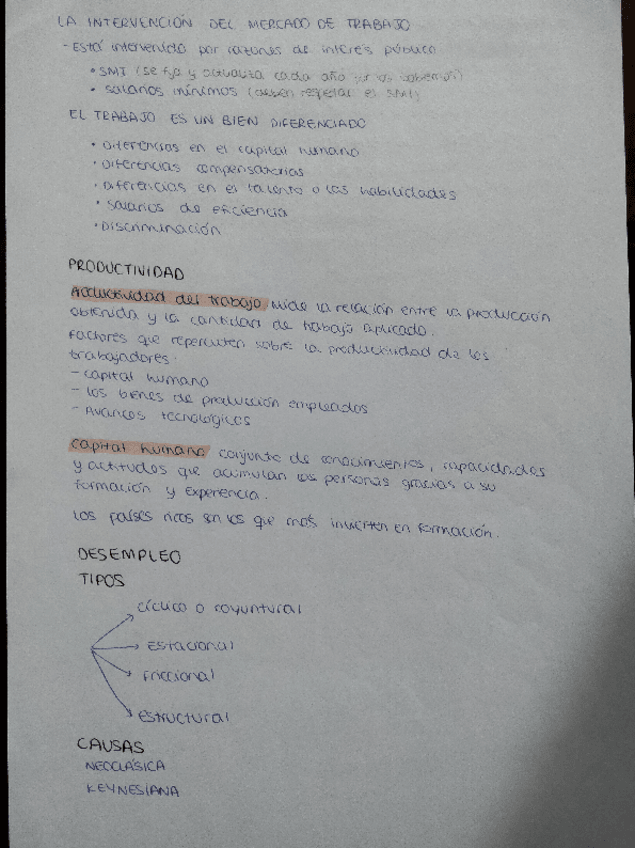 LA INTERVENCIÓN DEL MERCADO DE TRABAJO
- Está intervenido por razones de interés público
• SMI (se fija y actualiza cada año por el gobierno)
• salarios mínimos (deben respetar el SMI)
EL TRABAJO ES UN BIEN DIFERENCIADO
• Diferencias en el capital humano
• Diferencias compensatorias
• Diferencias en el talento o las habilidades
• Salarios de eficiencia
• Discriminación
PRODUCTIVIDAD
Productividad del trabajo mide la relación entre la producción
obtenida y la cantidad de trabajo aplicado.
Factores que repercuten sobre la productividad de los
trabajadores.
- Capital humano
- Los bienes de producción empleados
- Avances tecnológicos
Capital humano conjunto de conocimientos, capacidades
y actitudes que acumulan las personas gracias a su
formación y experiencia.
Los países ricos son los que más invierten en formación.
DESEMPLEO
TIPOS
Cíclico o coyuntural
Estacional
Friccional
Estructural
CAUSAS
NEOCLÁSICA
KEYNESIANA